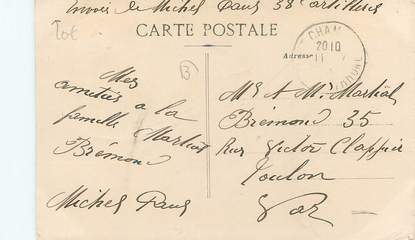 Envoi de Michel Paus 38e artillerie
CARTE POSTALE
Tot
Adresse
CHAM
2010
11
(3)
Mes
amitiés a la
famille Martial
Brémond
Michel Paus
Mr & Mme Martial
Brémond 35
Rue Victor Clappier
Toulon
Var